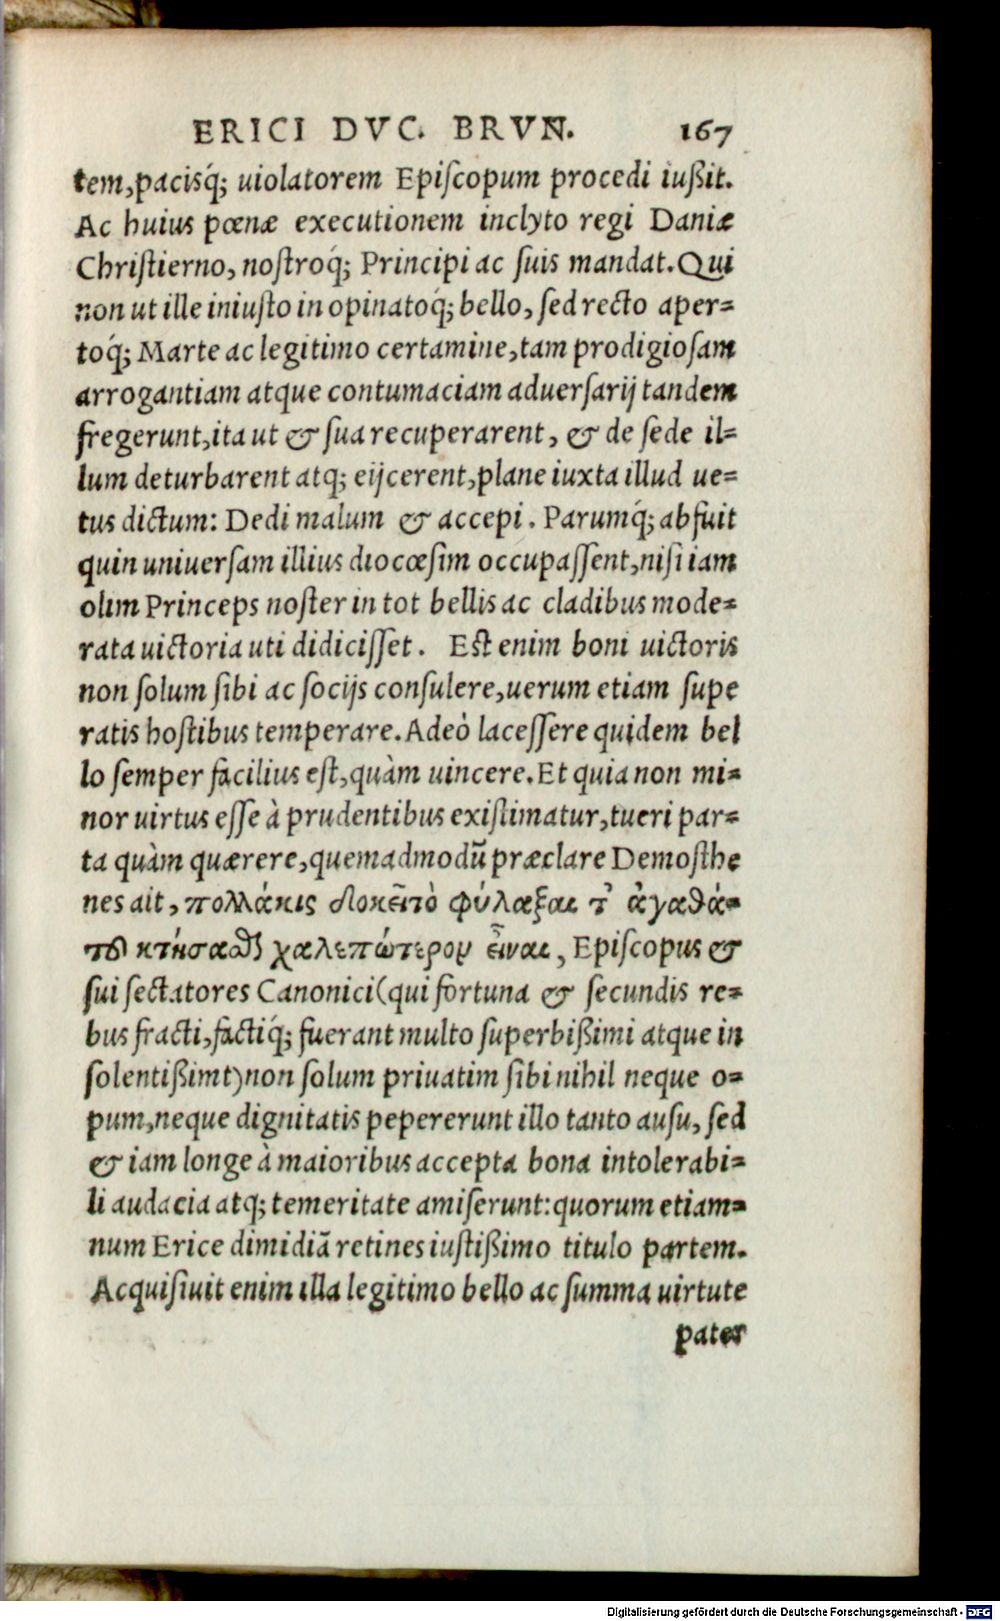 ERICI DVC. BRVN. 167
tem,pacisq́; uiolatorem Epiſcopum procedi iußit.
Ac huius pœnæ executionem inclyto regi Daniæ
Chriſtierno, noſtroq́; Principi ac ſuis mandat. Qui
non ut ille iniuſto in opinatoq́; bello, ſed recto aper=
toq́; Marte ac legitimo certamine,tam prodigioſam
arrogantiam atque contumaciam aduerſarij tandem
fregerunt,ita ut & ſua recuperarent, & de ſede il=
lum deturbarent atq; eijcerent,plane iuxta illud ue=
tus dictum: Dedi malum & accepi. Parumq́; abfuit
quin uniuerſam illius diocœſim occupaſſent,niſi iam
olim Princeps noſter in tot bellis ac cladibus mode=
rata uictoria uti didiciſſet. Eſt enim boni uictoris
non ſolum ſibi ac ſocijs conſulere,uerum etiam ſupe
ratis hoſtibus temperare. Adeò laceſſere quidem bel
lo ſemper facilius eſt,quàm uincere. Et quia non mi=
nor uirtus eſſe à prudentibus exiſtimatur,tueri par=
ta quàm quærere,quemadmodū præclare Demoſthe
nes ait, πολλάκις δοκεῖ τὸ φύλαξαι τ' ἀγαθά=
τοῦ κτήσασθαι χαλεπώτερον εἶναι, Epiſcopus &
ſui ſectatores Canonici(qui fortuna & ſecundis re=
bus fracti,factiq́; fuerant multo ſuperbißimi atque in
ſolentißimi)non ſolum priuatim ſibi nihil neque o=
pum,neque dignitatis pepererunt illo tanto auſu, ſed
& iam longe à maioribus accepta bona intolerabi=
li audacia atq; temeritate amiſerunt: quorum etiam=
num Erice dimidiā retines iuſtißimo titulo partem.
Acquiſiuit enim illa legitimo bello ac ſumma uirtute
pater
Digitalisierung gefördert durch die Deutsche Forschungsgemeinschaft - DFG